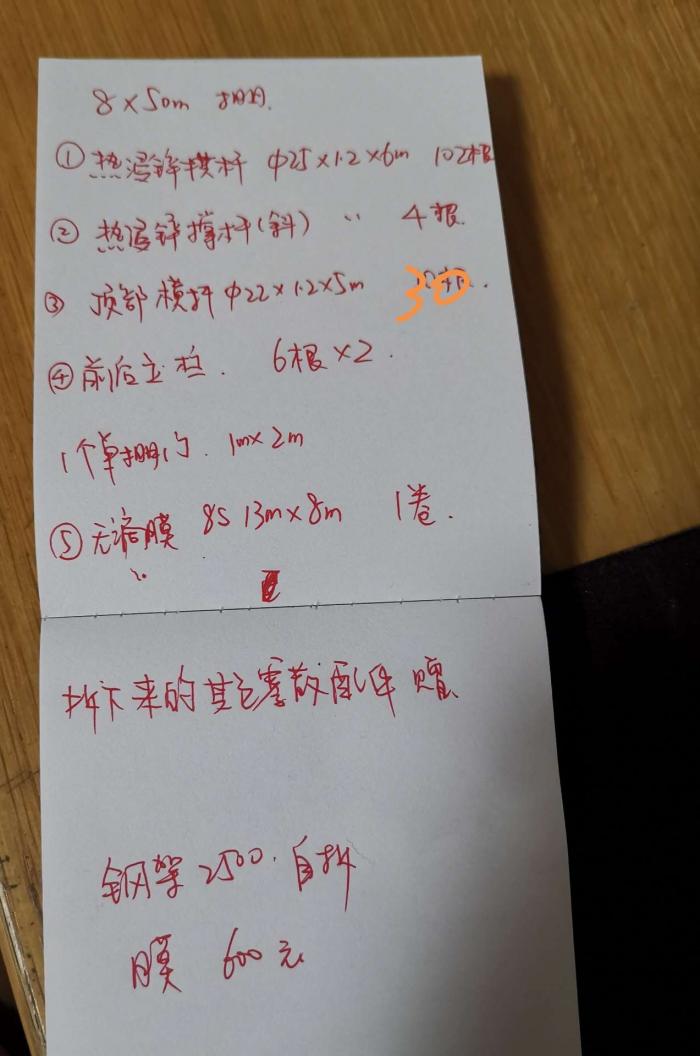 8×50m 棚.
① 热浸锌横杆 Φ25×1.2×6m 102根
② 热浸锌撑杆(斜) 〃 4根.
③ 顶部横杆 Φ22×1.2×5m 30根.
④ 前后立柱. 6根×2.
1个单棚门. 1m×2m
⑤ 无滴膜 8S 13m×8m 1卷.
拆下来的其它零散配件 赠.
钢架2500.自拆
膜 600元